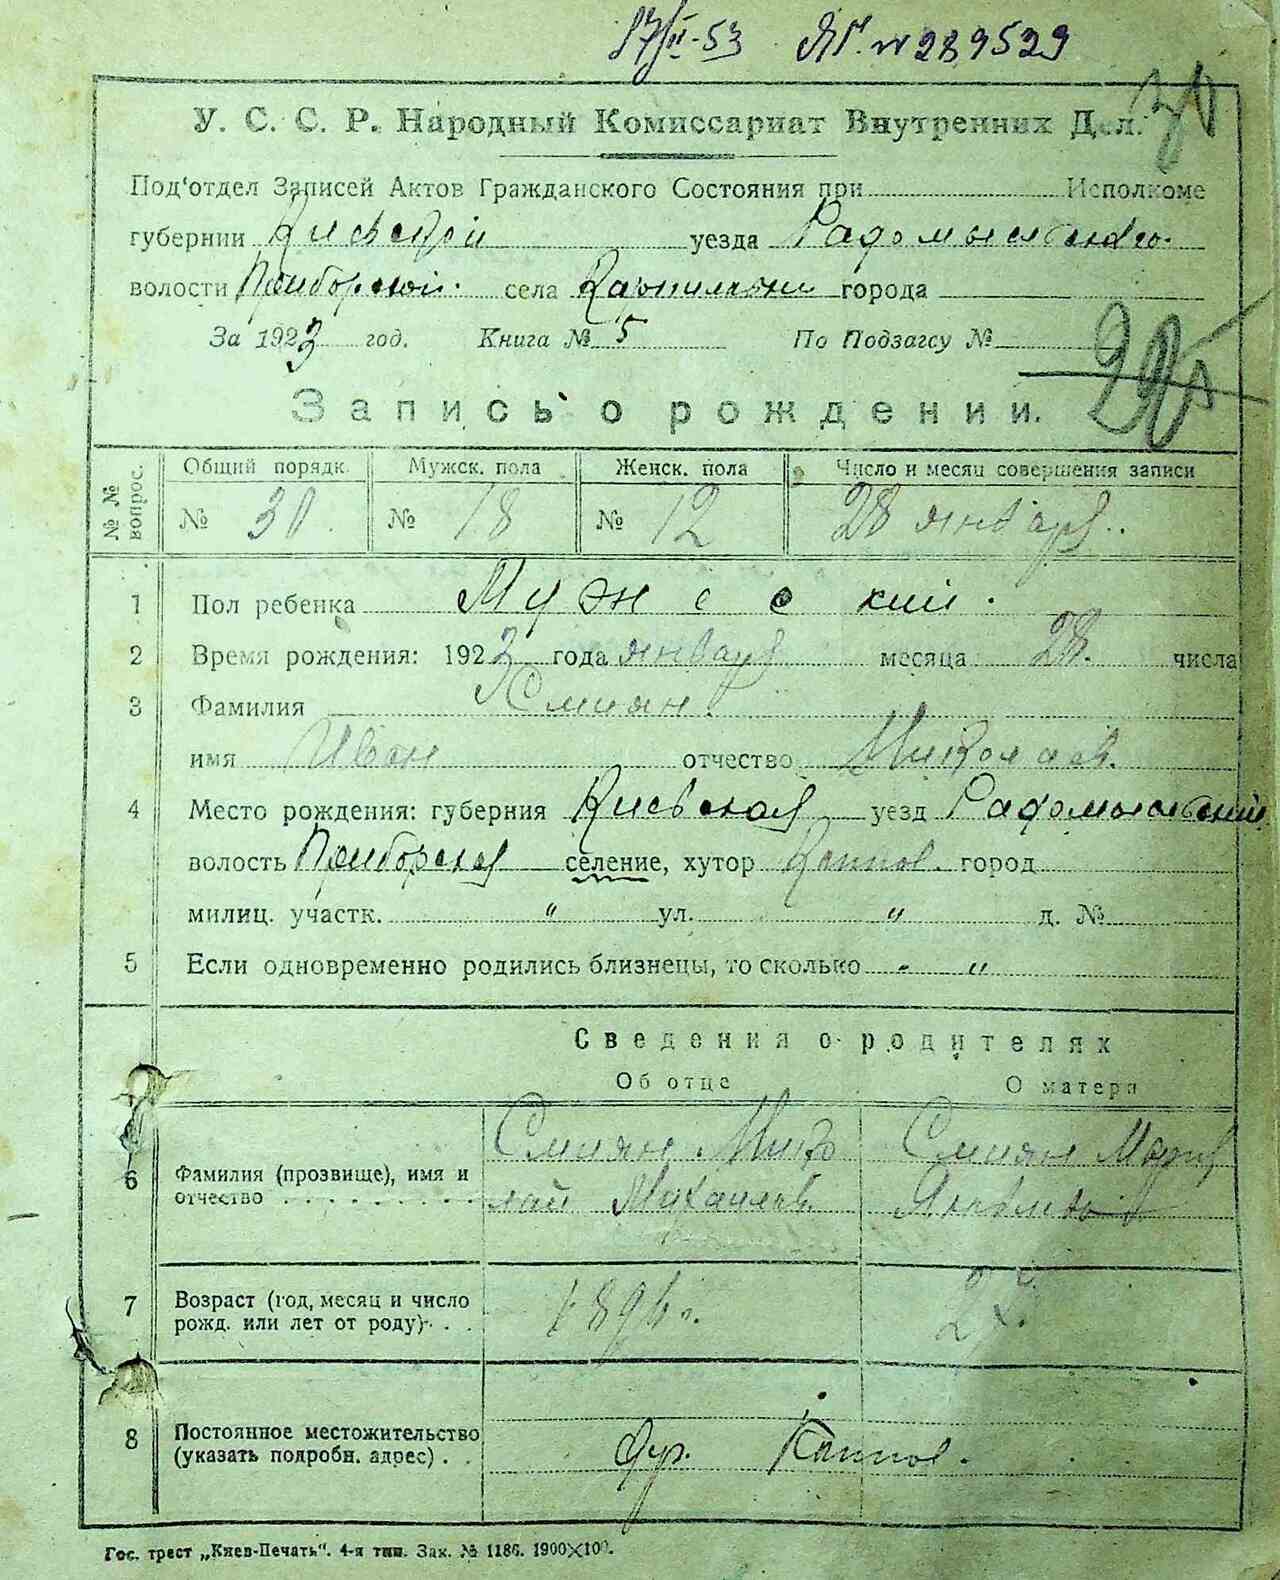 17/II-53 ЯГ. № 289529
30
У. С. С. Р. Народный Комиссариат Внутренних Дел.
Под‘отдел Записей Актов Гражданского Состояния при Исполкоме
губернии Киевской уезда Радомысльского
волости Приборской села города
За 1923 год. Книга № 5 По Подзагсу №
Запись о рождении.
№ № вопрос. Общий порядк. Мужск. пола Женск. пола Число и месяц совершения записи
№ 30 № 18 № 12 28 января
1 Пол ребенка Мужсский.
2 Время рождения: 1923 года января месяца 28. числа
3 Фамилия Смиян
имя Иван отчество Миколаев.
4 Место рождения: губерния Киевская уезд Радомысльский
волость Приборская селение, хутор город
милиц. участк. " ул. " д. №
5 Если одновременно родились близнецы, то сколько - "
Сведения о родителях
Об отце О матери
6 Фамилия (прозвище), имя и отчество Смиян Мико Смиян Мария
лай Михайлов.
7 Возраст (год, месяц и число рожд. или лет от роду) 1896 г.
8 Постоянное местожительство (указать подробн. адрес)
Гос. трест „Киев-Печать“. 4-я тип. Зак. № 1186. 1900×100.